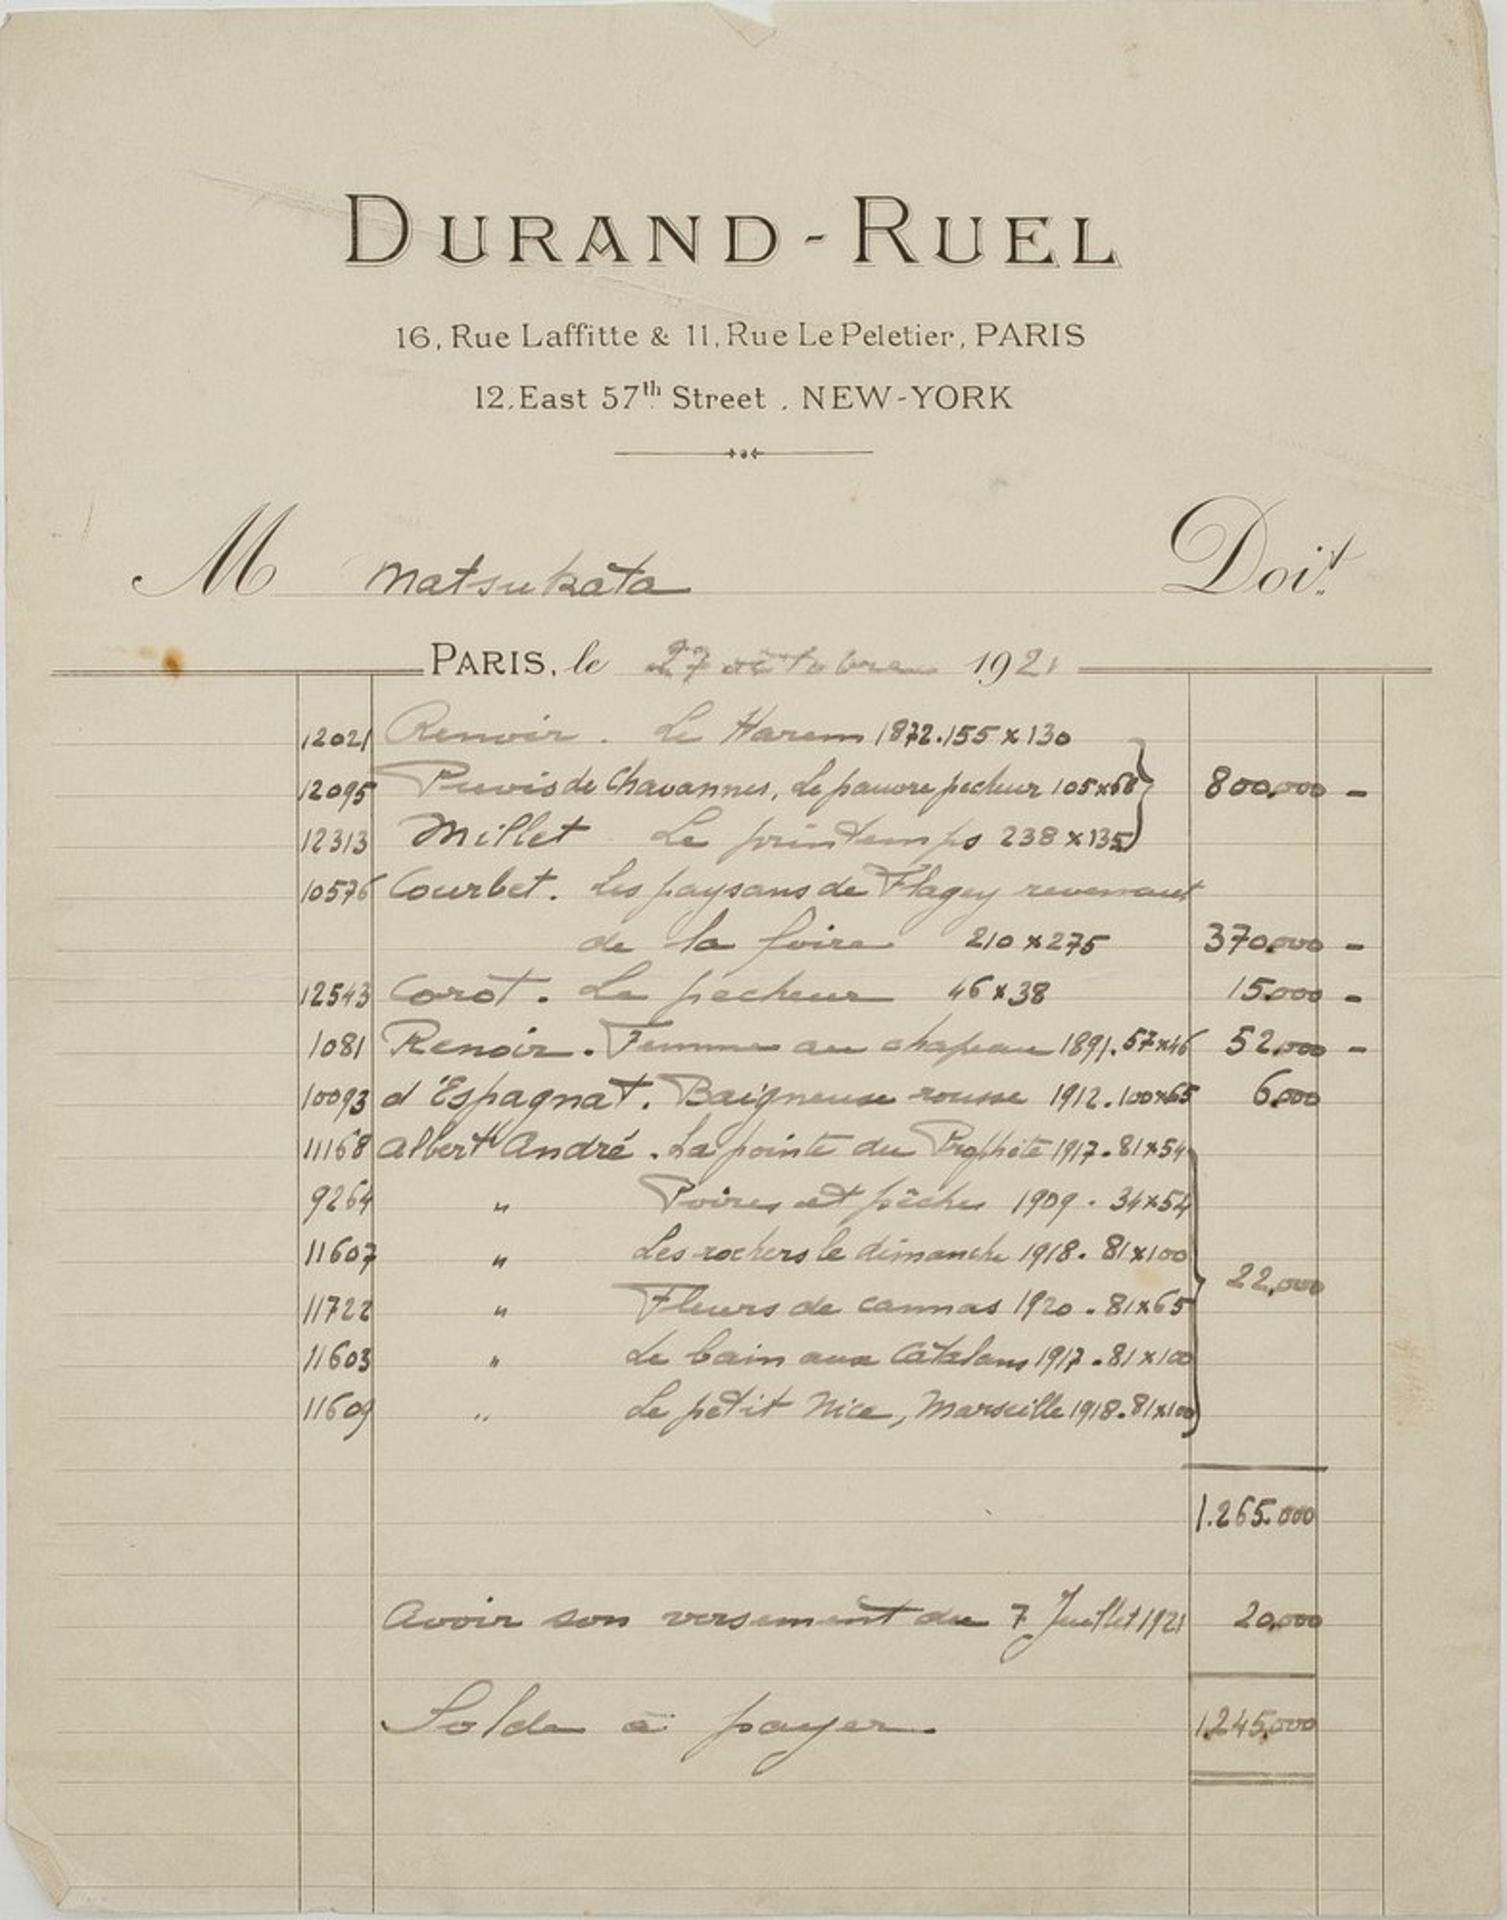 DURAND-RUEL
16, Rue Laffitte & 11, Rue Le Peletier, PARIS
12, East 57th Street, NEW-YORK
M Matsukata Doit
PARIS, le 27 octobre 1921
12021 Renoir. Le Harem 1872. 155 x 130
12095 Puvis de Chavannes, Le pauvre pecheur 105 x 68 800,000 -
12313 Millet Le printemps 238 x 135
10576 Courbet. Les paysans de Flagey revenant
de la foire 210 x 275 370,000 -
12543 Corot. Le pecheur 46 x 38 15,000 -
1081 Renoir. Femme au chapeau 1891. 57 x 46 52,000 -
10093 d'Espagnat. Baigneuse rousse 1912. 100 x 65 6,000
11168 Albert André. La pointe du Prophète 1917. 81 x 54
9264 " Poires et pêches 1909. 34 x 54
11607 " Les rochers le dimanche 1918. 81 x 100
22,000
11722 " Fleurs de cannas 1920. 81 x 65
11603 " Le bain aux Catalans 1917. 81 x 100
11609 " Le petit Nice, Marseille 1918. 81 x 100
1.265.000
Avoir son versement du 7 Juillet 1921 20,000
Solde à payer. 1.245,000